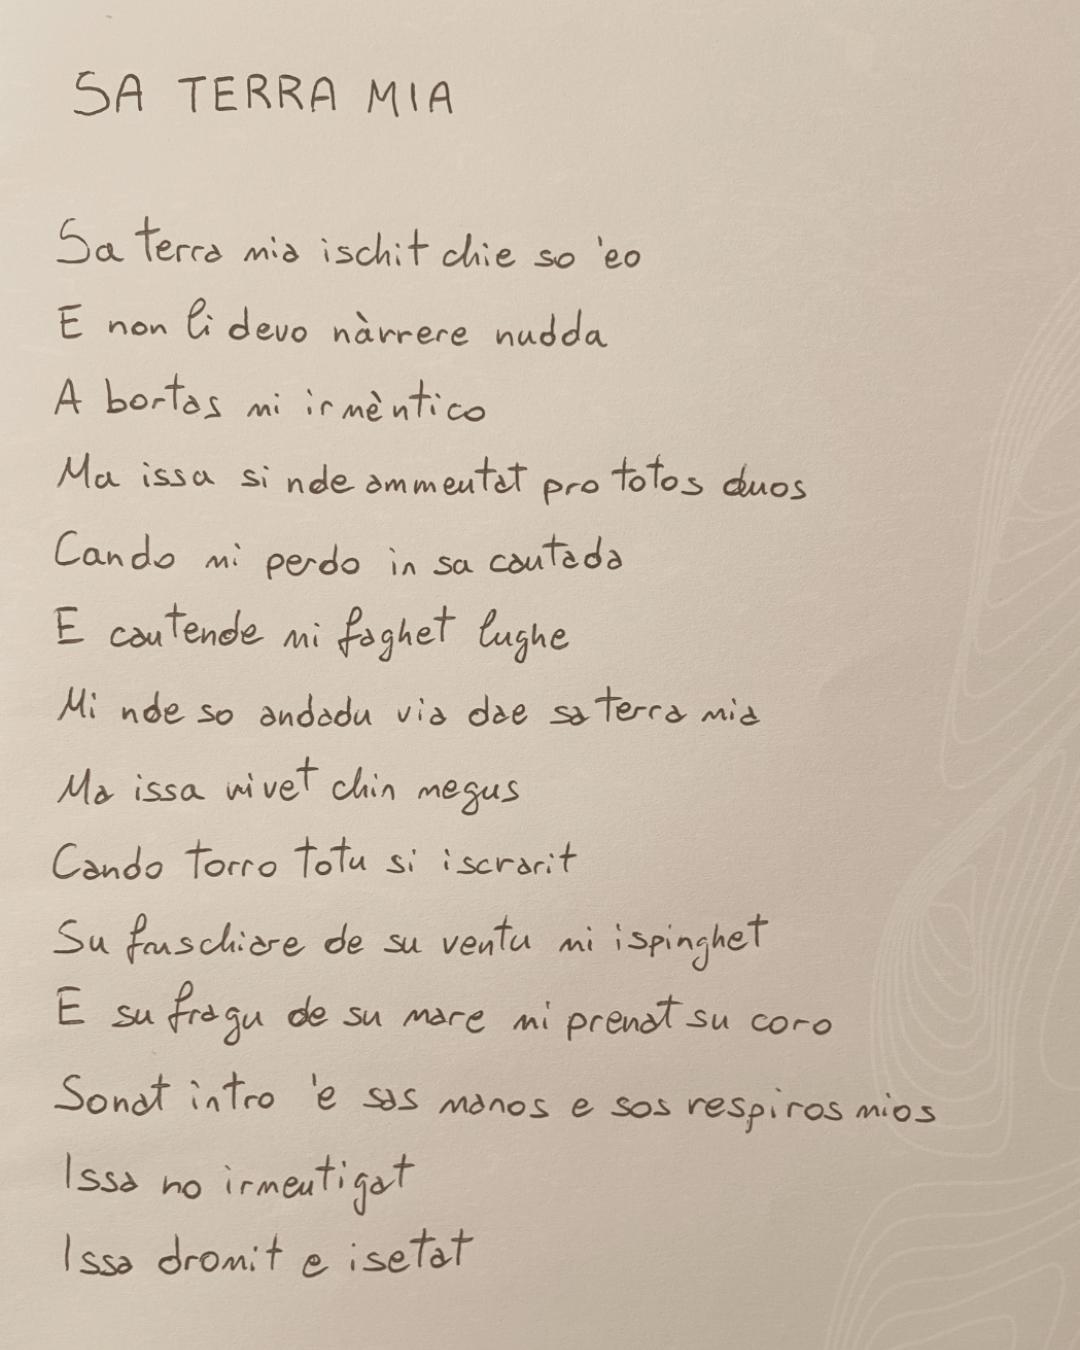 SA TERRA MIA
Sa terra mia ischit chie so 'eo
E non li devo nàrrere nudda
A bortas mi irmèntico
Ma issa si nde ammentat pro totos duos
Cando mi perdo in sa cantada
E cantende mi faghet lughe
Mi nde so andadu via dae sa terra mia
Ma issa vivet chin megus
Cando torro totu si iscrarit
Su fruschiare de su ventu mi ispinghet
E su fragu de su mare mi prenat su coro
Sonat intro 'e sas manos e sos respiros mios
Issa no irmentigat
Issa dromit e isetat